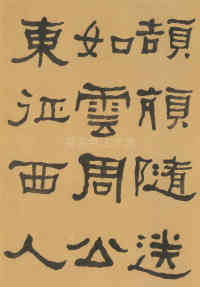 頡頏隨送
如雲周公
東征西人